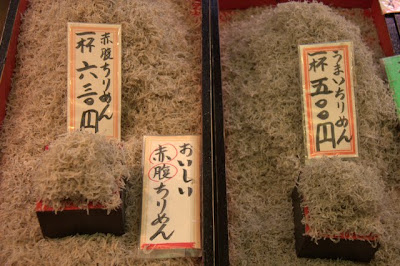 赤腹ちりめん
一杯 六三〇円
おいしい
赤腹ちりめん
うまいちりめん
一杯 五〇〇円